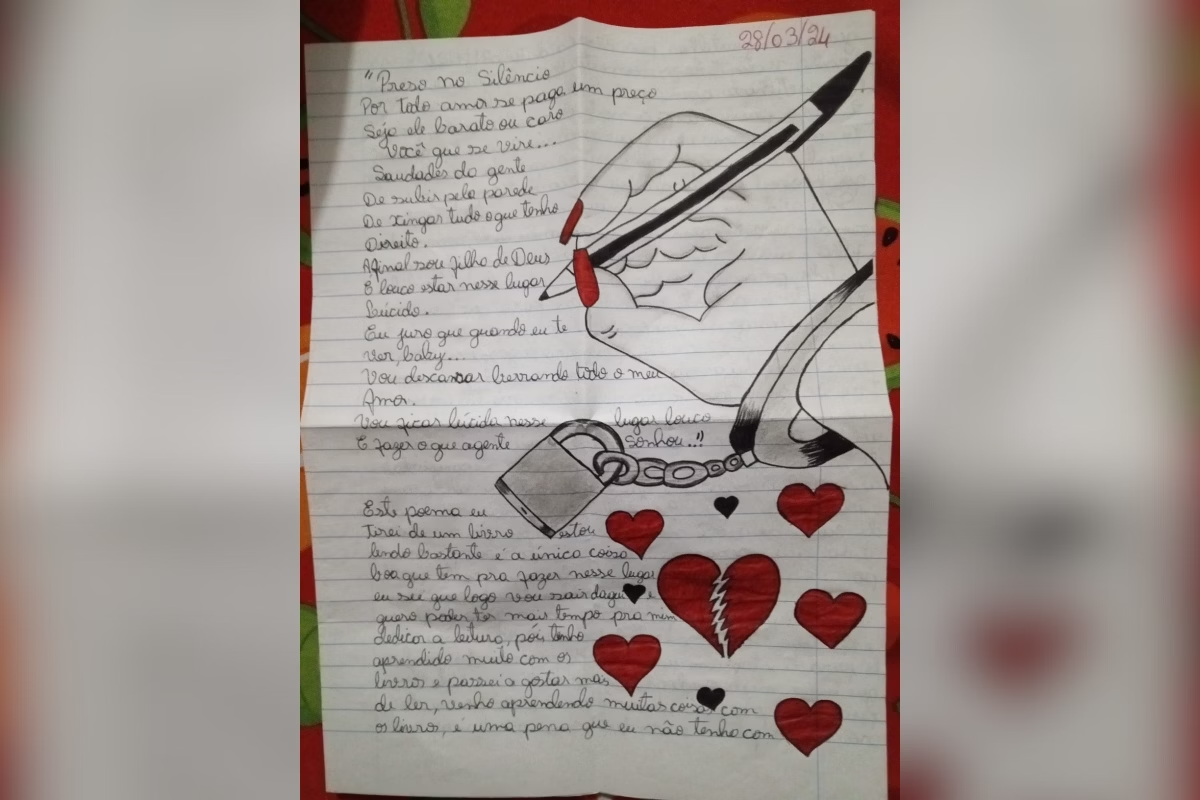 28/03/24
"Preso no Silêncio
Por todo amor se paga um preço
Seja ele barato ou caro
Você que se vire...
Saudades da gente
De subir pela parede
De xingar tudo o que tenho
Direito.
Afinal sou filho de Deus
E louco estar nesse lugar
Lúcido.
Eu juro que quando eu te
ver, baby...
Vou descansar berrando todo o meu
Amor.
Vou ficar lúcida nesse lugar louco
E fazer o que agente sonhou..."
Este poema eu
Tirei de um livro estou
lendo bastante é a única coisa
boa que tem pra fazer nesse lugar
eu sei que logo vou sair daqui e
quero poder ter mais tempo pra mim
dedicar a leitura, pois tenho
aprendido muito com os
livros e passei a gostar mais
de ler, venho aprendendo muitas coisas com
os livros, é uma pena que eu não tenha com